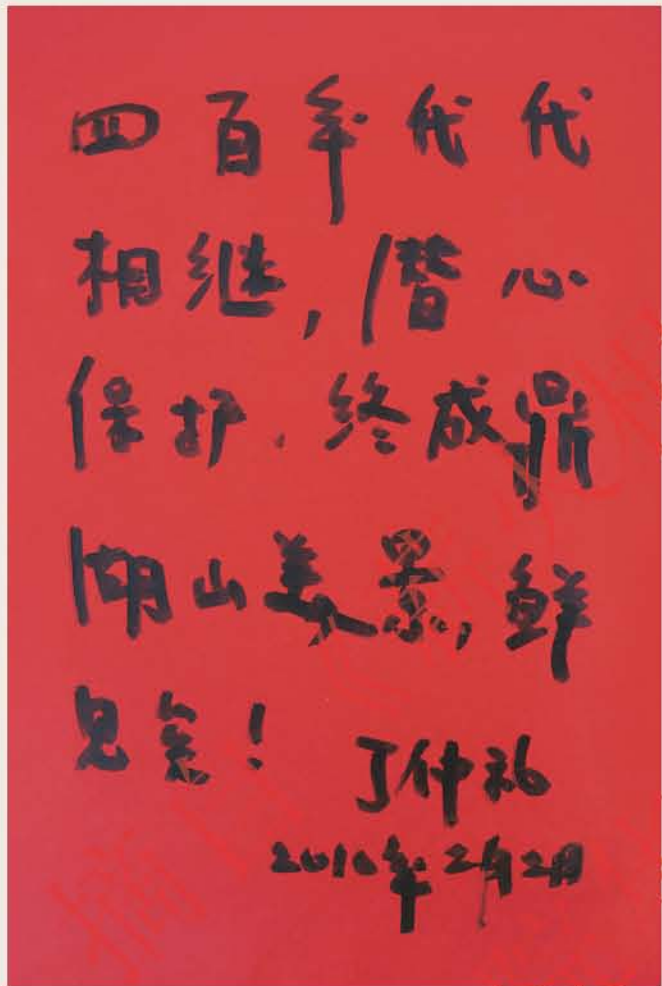 四百年代代
相继,潜心
保护,终成鼎
湖山美景,鲜
见矣!
丁仲礼
2010年2月2日